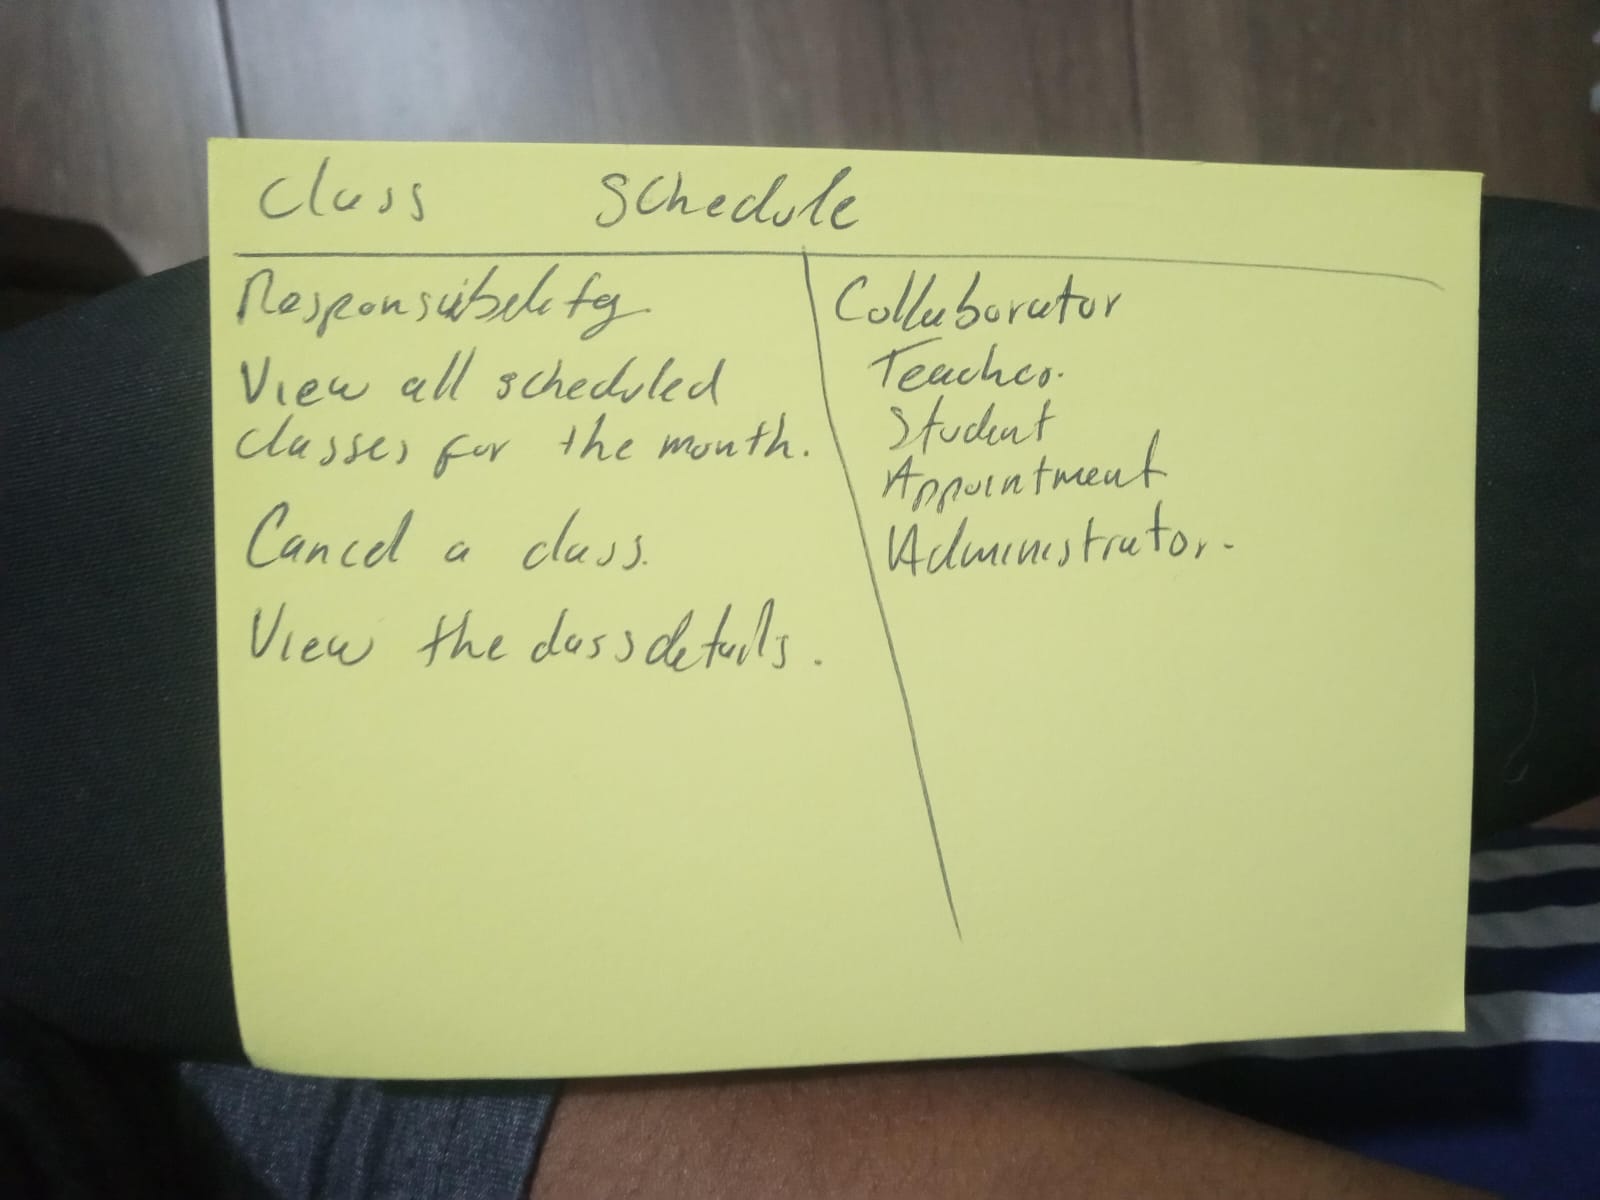 Class Schedule
Responsibility
View all scheduled
classes for the month.
Cancel a class.
View the class details.
Collaborator
Teacher.
Student
Appointment
Administrator.